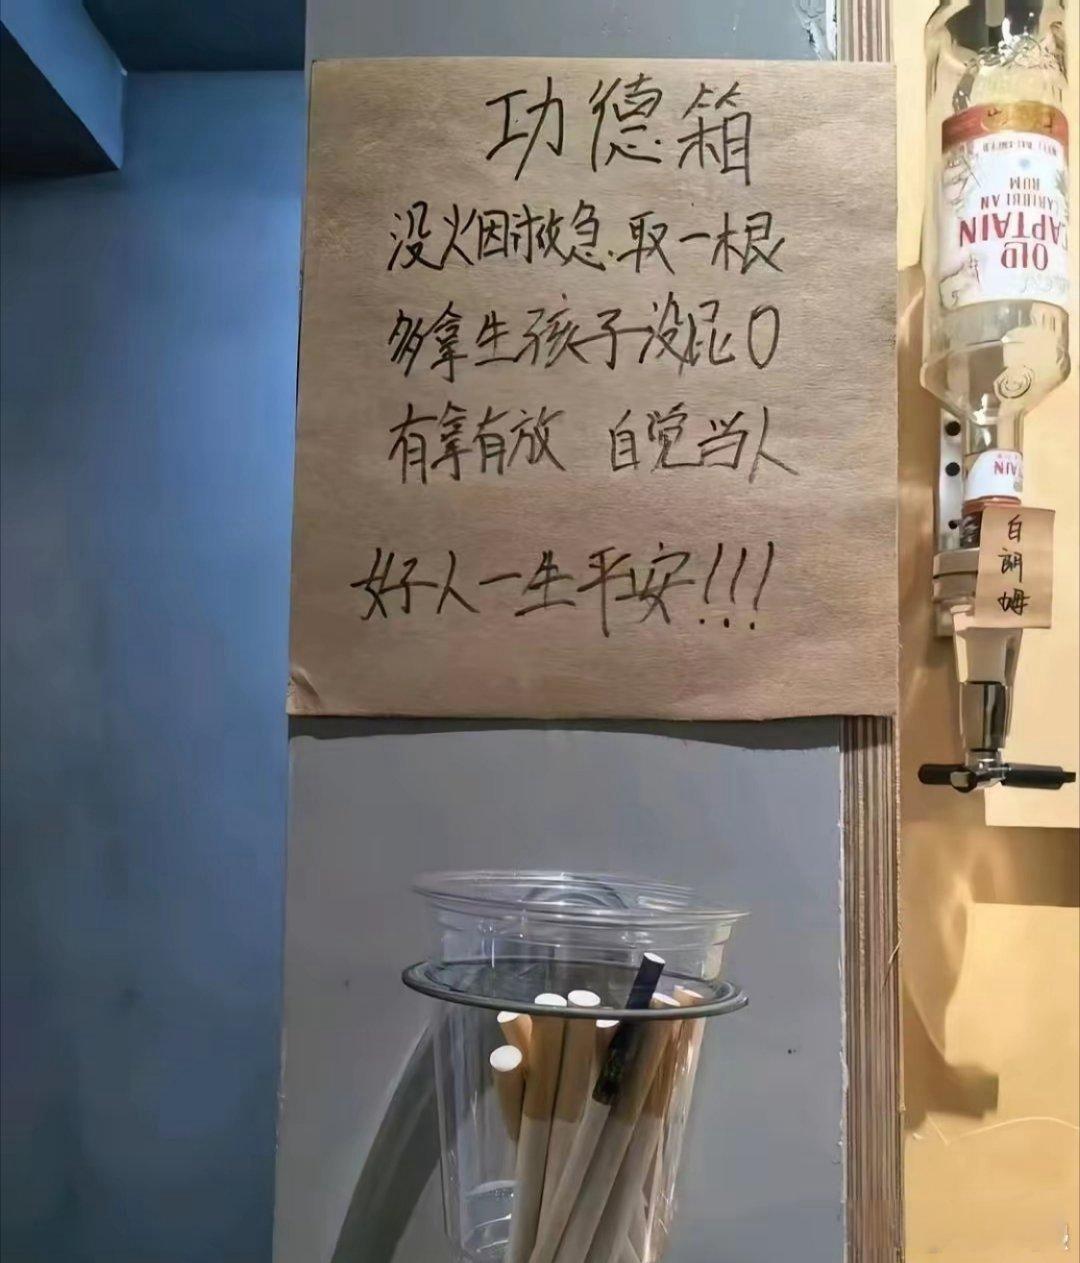 功德箱
没烟救急.取一根
多拿生孩子没屁0
有拿有放 自觉当人
好人一生平安!!!
OLD
CAPTAIN
CARIBBEAN
RUM
白朗姆